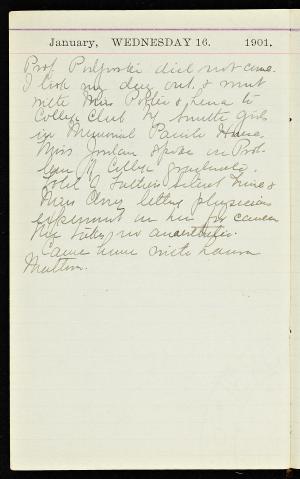 January, WEDNESDAY 16. 1901.
Prof. did not come.
I took my dog out, & went
with Miss Potter & Lena to
College Club by Smith Girls
in Memorial Parish House.
Miss Jordan spoke on Prob
lem of College graduate.
Told of Father's silent &
Miss letting physicians
experiment on her for cancer
no anaesthetic.
Came home with Laura